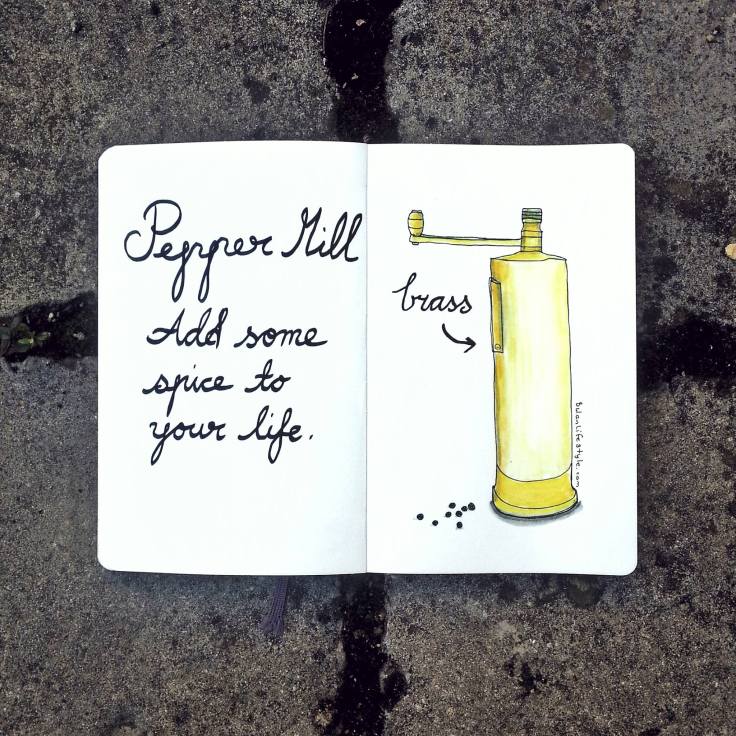 Pepper Mill
Add some
spice to
your life.
brass
bilanlifestyle.com